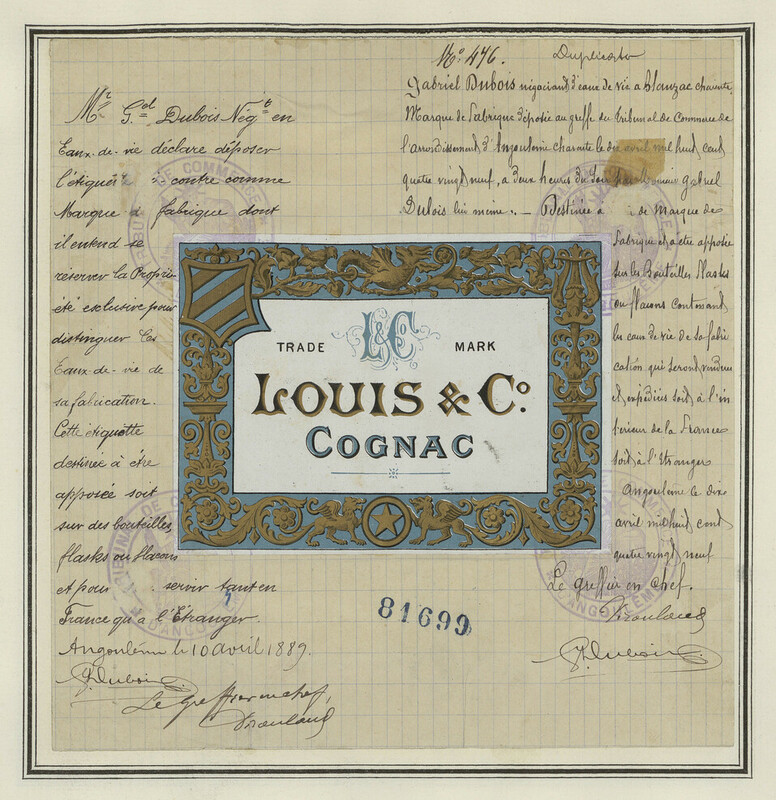 No. 476.
Duplicata
Mr. Gd. Dubois Négt. en
Eaux-de-vie déclare déposer
l'étiquette ci contre comme
Marque de fabrique dont
il entend se
réserver la Propri-
été exclusive pour
distinguer les
Eaux-de-vie de
sa fabrication.
Cette étiquette
destinée à être
apposée soit
sur des bouteilles,
flasks ou flacons
et pour servir tant en
France qu'à l'Étranger.
Angoulême le 10 avril 1889.
G. Dubois
Le Greffier en chef,
Gabriel Dubois négociant d'eaux de vie a Blanzac charente.
Marque de Fabrique déposée au greffe du Tribunal de Commerce de
l'arrondissement d'Angoulême charente le dix avril mil huit cent
quatre vingt neuf, a deux heures du soir par Monsieur Gabriel
Dubois lui même. - Destinée a de Marque de
Fabrique et a être apposée
sur les Bouteilles Flasks
ou flacons contenant
les eaux de vie de sa fabri
cation qui seront vendues
et expédiées soit à l'in
térieur de la France
soit à l'Etranger
Angoulême le dix
avril mil huit cent
quatre vingt neuf
Le greffier en chef.
G. Dubois
L&Co
TRADE MARK
LOUIS & Co.
COGNAC
81699
TRIBUNAL DE COMMERCE
D'ANGOULÊME